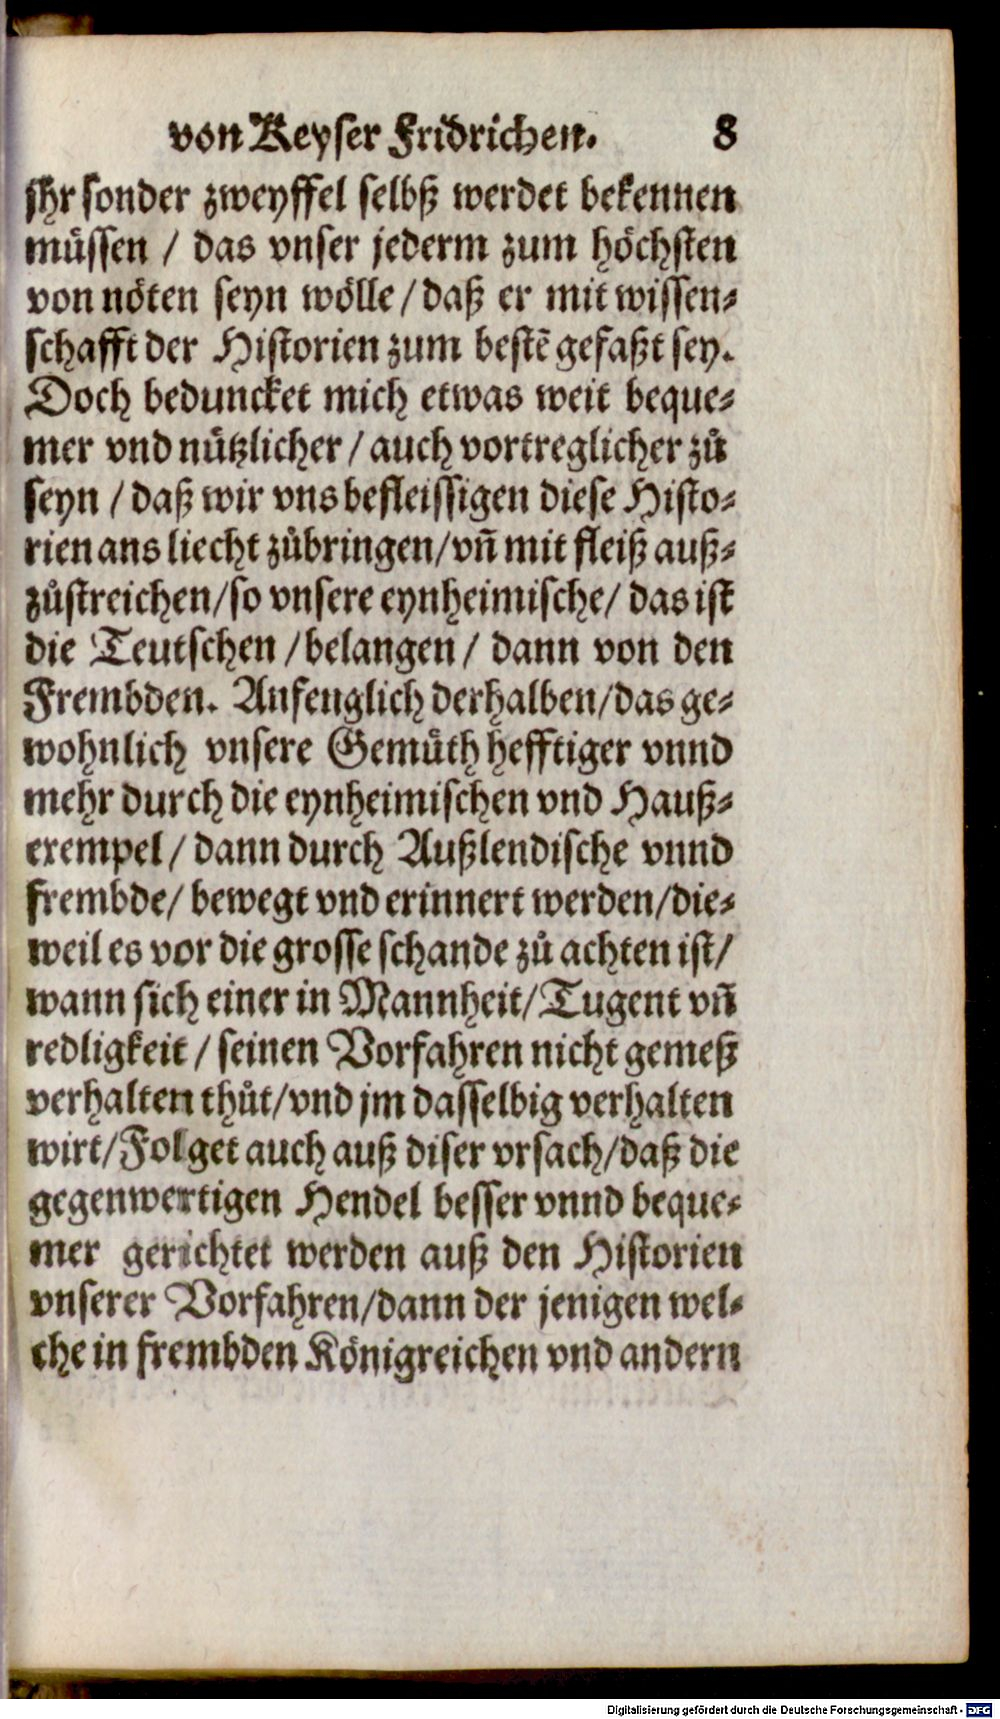 von Keyser Fridrichen. 8
jhr sonder zweyffel selbß werdet bekennen
müssen / das vnser jederm zum höchsten
von nöten seyn wölle / daß er mit wissen-
schafft der Historien zum bestē gefaßt sey.
Doch beduncket mich etwas weit beque-
mer vnd nützlicher / auch vortreglicher zů
seyn / daß wir vns befleissigen diese Histo-
rien ans liecht zůbringen / vñ mit fleiß auß-
zůstreichen / so vnsere eynheimische / das ist
die Teutschen / belangen / dann von den
Frembden. Anfenglich derhalben / das ge-
wohnlich vnsere Gemüth hefftiger vnnd
mehr durch die eynheimischen vnd Hauß-
exempel / dann durch Außlendische vnnd
frembde / bewegt vnd erinnert werden / die-
weil es vor die grosse schande zů achten ist /
wann sich einer in Mannheit / Tugent vñ
redligkeit / seinen Vorfahren nicht gemeß
verhalten thůt / vnd jm dasselbig verhalten
wirt / Folget auch auß diser vrsach / daß die
gegenwertigen Hendel besser vnnd beque-
mer gerichtet werden auß den Historien
vnserer Vorfahren / dann der jenigen wel-
che in frembden Königreichen vnd andern
Digitalisierung gefördert durch die Deutsche Forschungsgemeinschaft - DFG